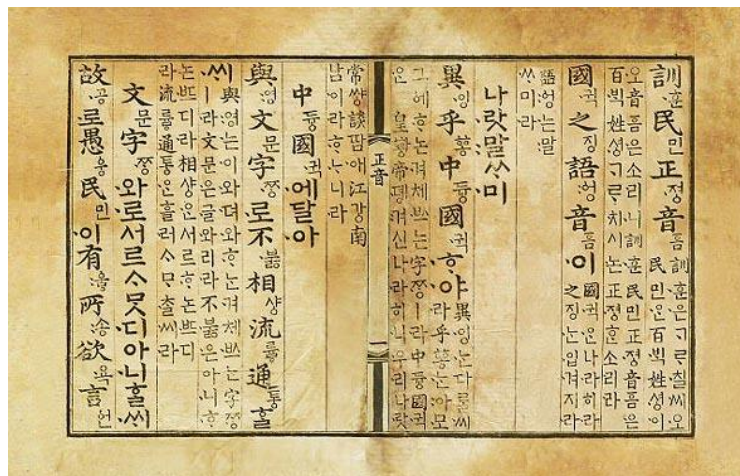 訓훈民민正졍音ᅙᅳᆷ 訓훈은ᄀᆞᄅᆞ칠씨오
民민ᄋᆞᆫ百ᄇᆡᆨ姓셩이
오音ᅙᅳᆷ은소리니訓훈民민正졍音ᅙᅳᆷ은
百ᄇᆡᆨ姓셩ᄀᆞᄅᆞ치시논正졍ᄒᆞᆫ소리라
國귁之징語ᅌᅥᆼ音ᅙᅳᆷ이 國귁ᄋᆞᆫ나라히라
之징ᄂᆞᆫ입겨지라
語ᅌᅥᆼ는말
ᄊᆞ미라
나랏말ᄊᆞ미
異잉乎ᅘᅩᆼ中듕國귁ᄒᆞ야 異잉ᄂᆞᆫ다ᄅᆞᆯ씨
라乎ᅘᅩᆼᄂᆞᆫ아모
그ᅌᅦᄒᆞ논겨체ᄡᅳ는字ᄍᆞᆼㅣ라中듕國귁
ᄋᆞᆫ皇ᅘᅪᆼ帝뎽겨신나라히니우리나랏
正音 一
常썅談땀애江강南
남이라ᄒᆞᄂᆞ니라
中듕國귁에달아
與영文문字ᄍᆞᆼ로不붏相샹流륳通통ᄒᆞᆯ
씨 與영는이와뎌와ᄒᆞ논겨체ᄡᅳ는字ᄍᆞᆼ
ㅣ라文문은글와리라不붏은아니ᄒᆞ
논ᄠᅳ디라相샹ᄋᆞᆫ서르ᄒᆞ논ᄠᅳ디
라流륳通통ᄋᆞᆫ흘러ᄉᆞᄆᆞᄎᆞᆯ씨라
文문字ᄍᆞᆼ와로서르ᄉᆞᄆᆞᆺ디아니ᄒᆞᆯᄊᆡ
故공로愚웅民민이有ᅌᅮᇢ所송欲욕言언